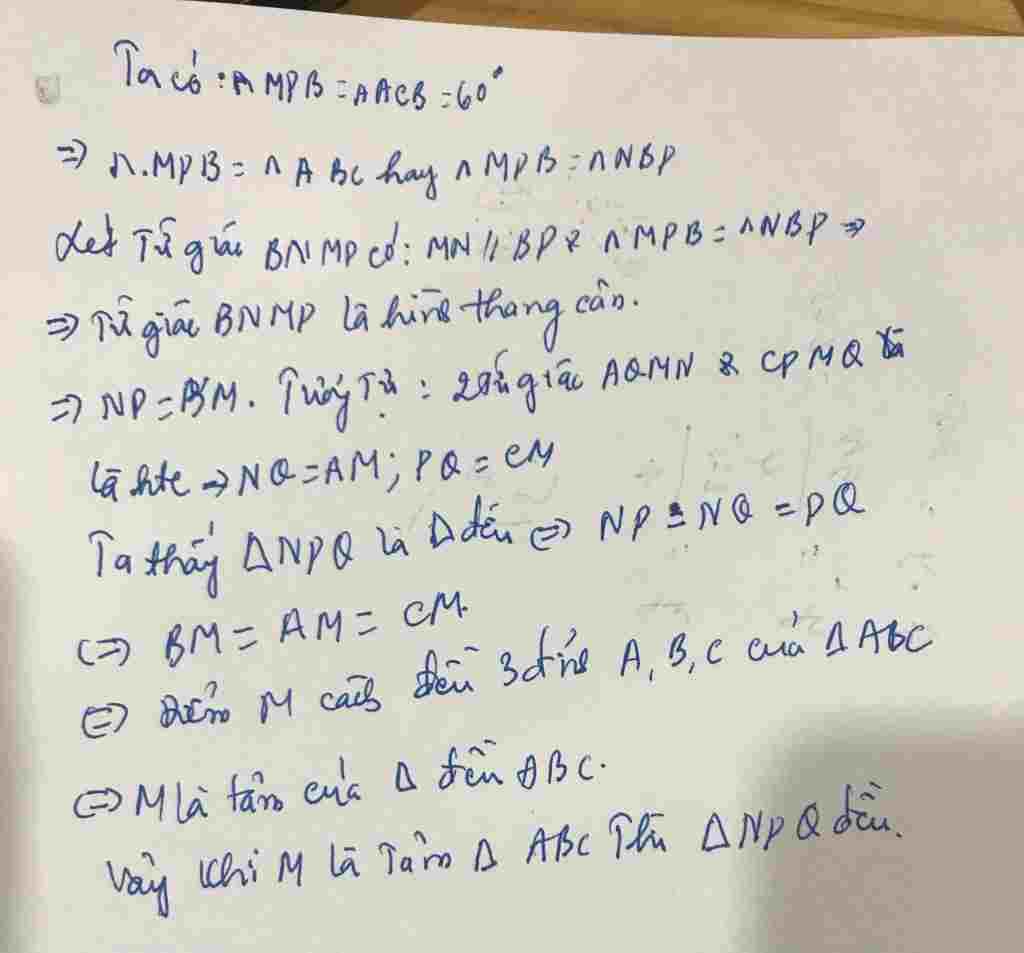 Ta có : ∧ MPB = ∧ ACB = 60°
=> ∧.MPB = ∧ ABC hay ∧ MPB = ∧ NBP
Xét Tứ giác BNMP có: MN // BP & ∧ MPB = ∧ NBP =>
=> Tứ giác BNMP là hình thang cân.
=> NP = BM. Tương Tự : 2 tứ giác AQMN & CPMQ là
là htc => NQ = AM; PQ = CM
Ta thấy Δ NPQ là Δ đều <=> NP = NQ = PQ
<=> BM = AM = CM.
<=> Điểm M cách đều 3 đỉnh A, B, C của Δ ABC
<=> M là tâm của Δ đều ABC.
Vậy khi M là Tâm Δ ABC Thì Δ NPQ đều.